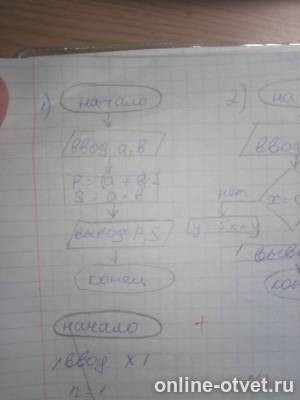 1) начало
ввод a, b
S = a · b
вывод P, S
конец
2) на
ввод
нет
x =
y = 5x + y
выв
кон
начало
ввод x1
n = 1
online-otvet.ru